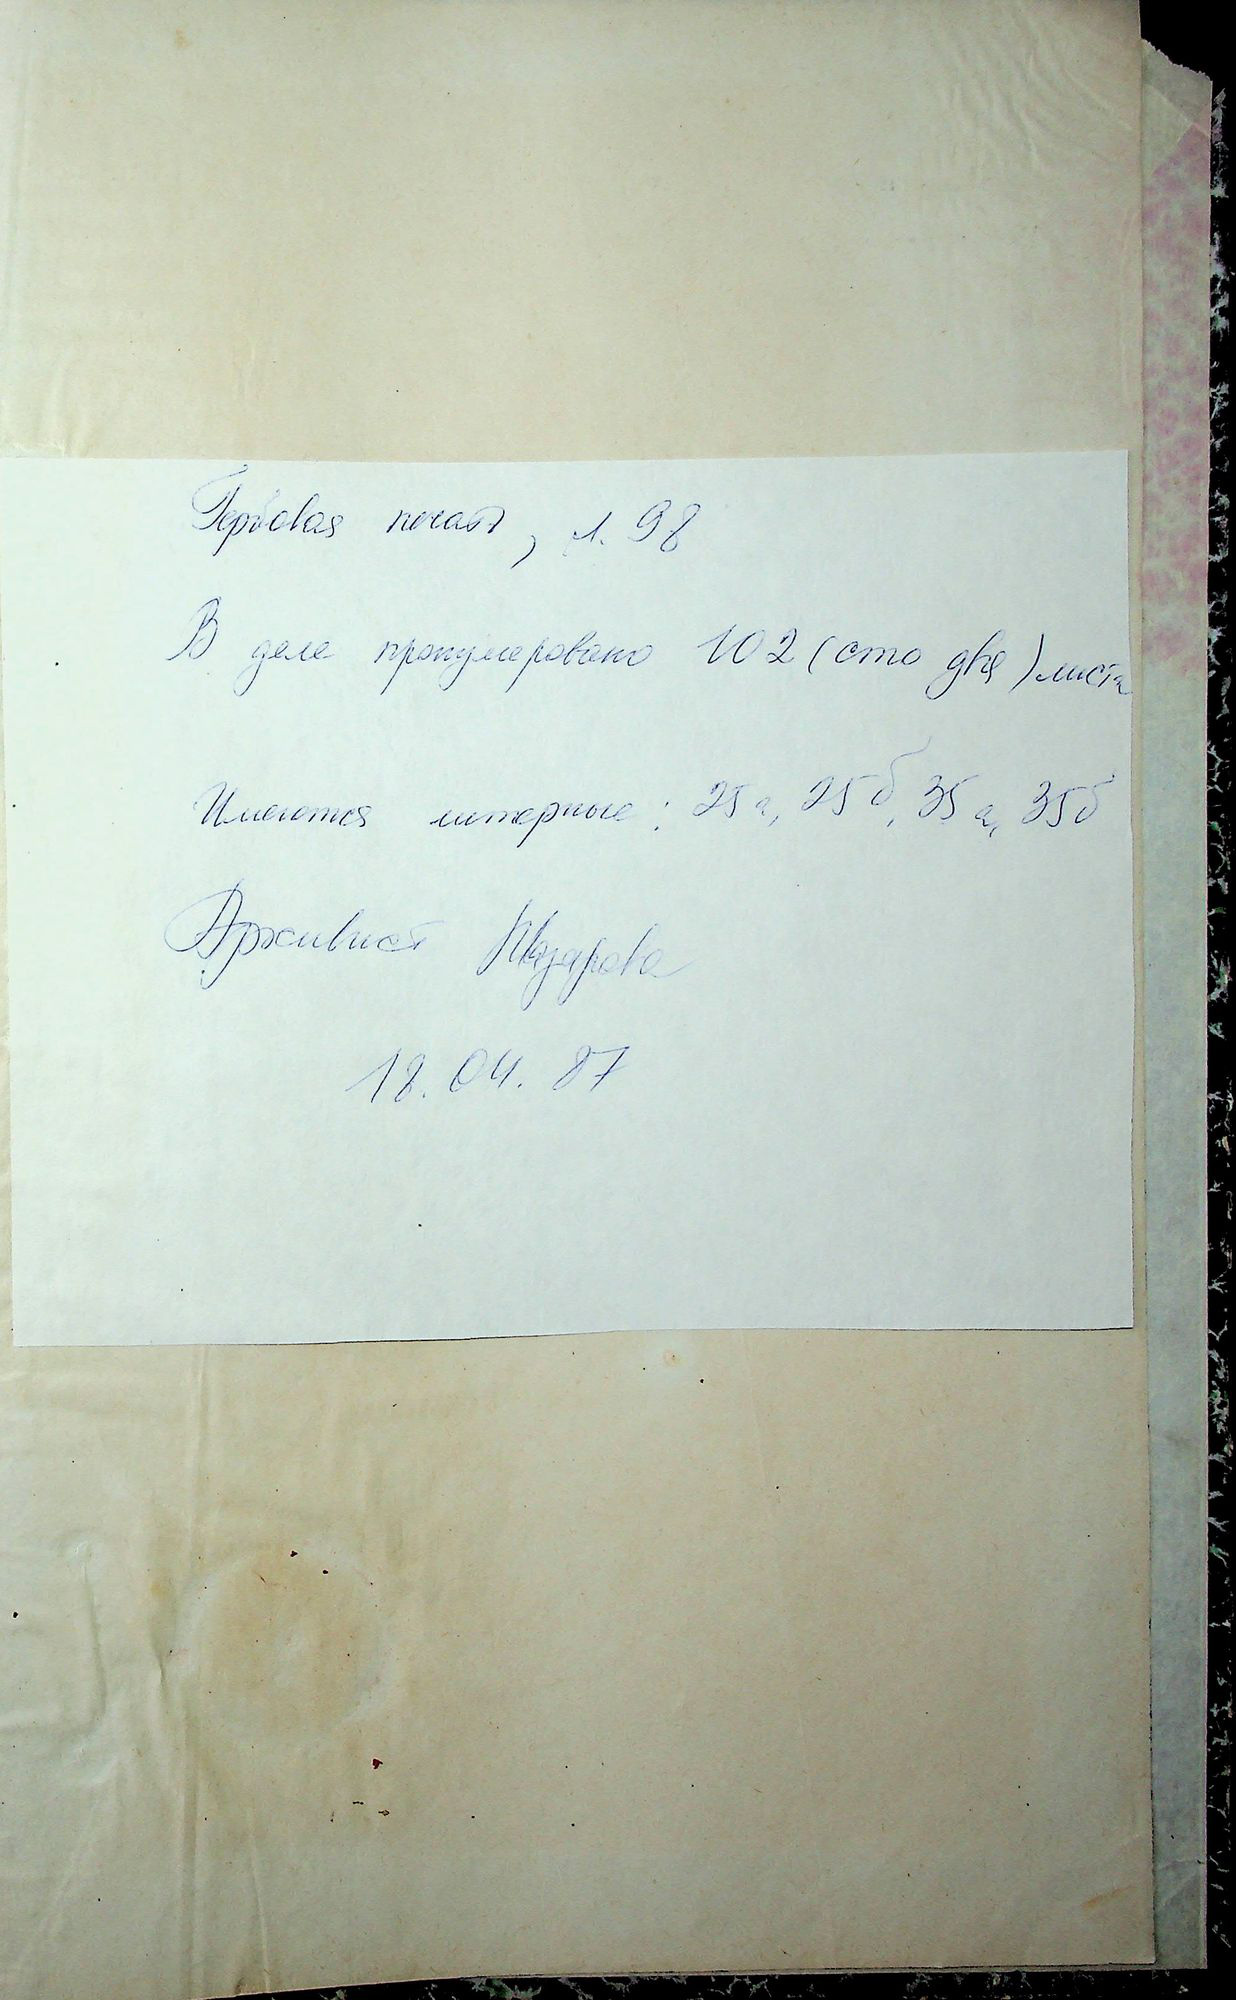 Гербовая печать, л. 98
В деле пронумеровано 102 (сто два) листа
Имеются литерные: 25а, 25б, 35а, 35б
Архивист
18.04.87